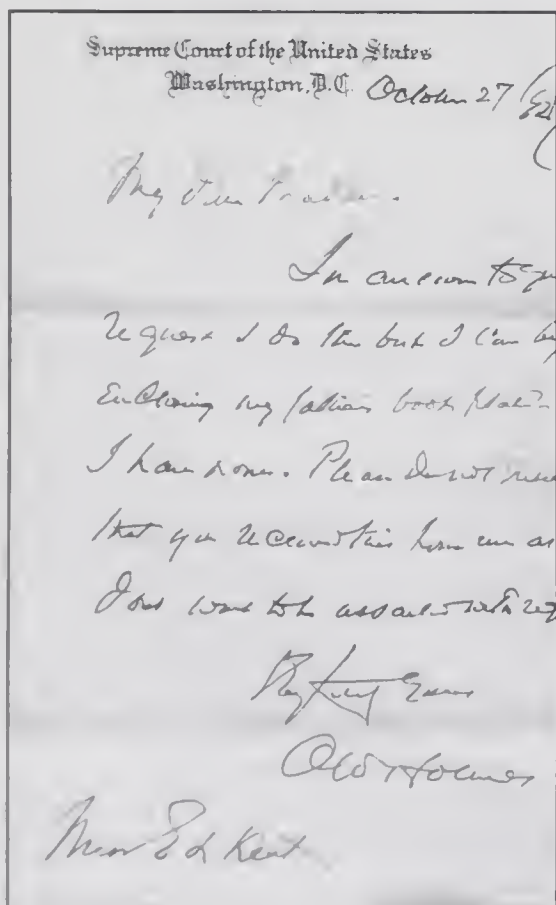 Supreme Court of the United States
Washington, D.C. October 27
My dear
In answer to
request I do the best I can by
Enclosing my father's book plate.
I have none. Please do not
that you received this from me as
I do not want to be
Very truly yours
O W Holmes
Miss E L Kent